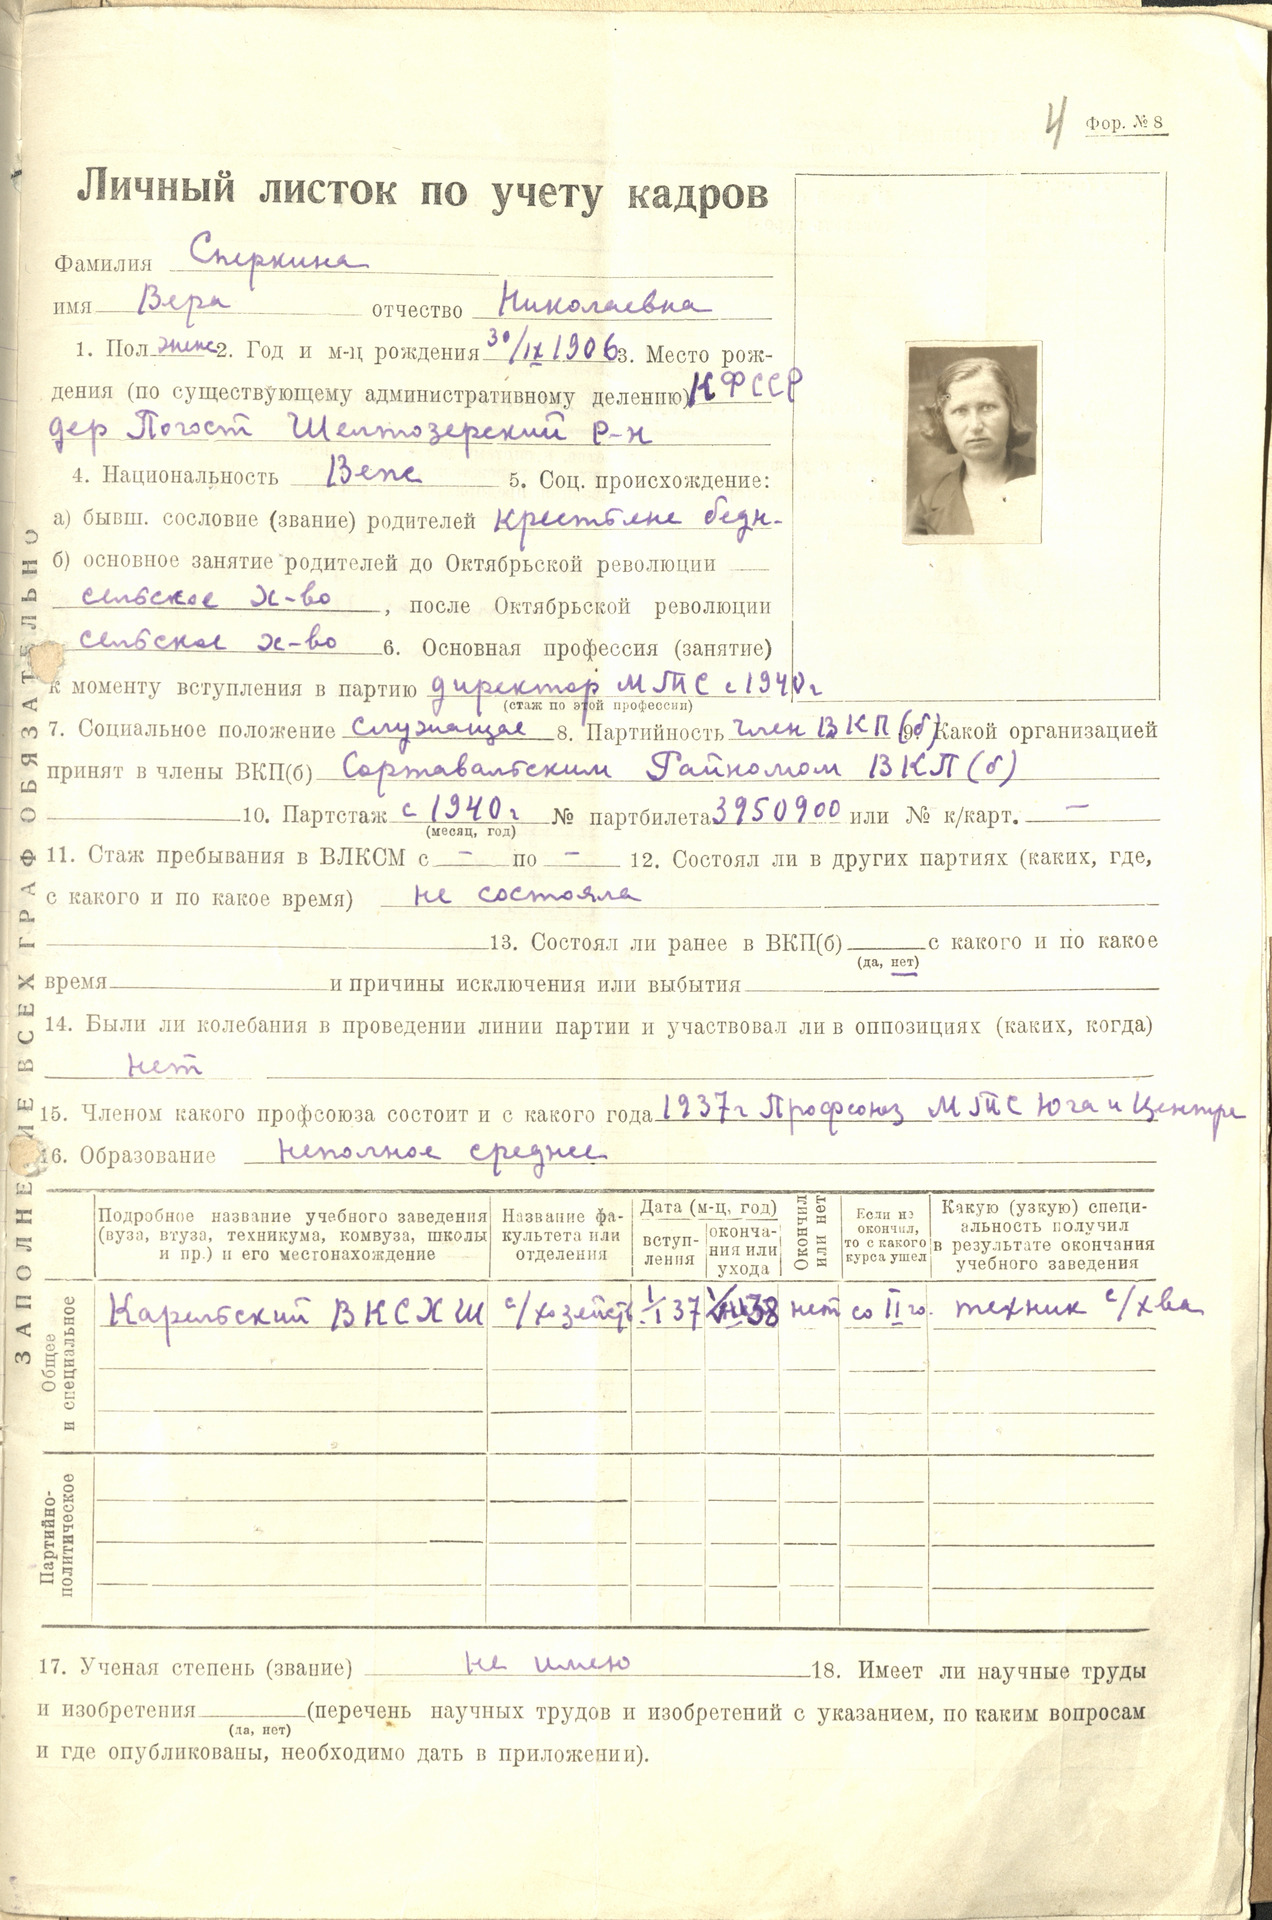 4 Фор. № 8
Личный листок по учету кадров
Фамилия Сперкина
имя Вера отчество Николаевна
1. Пол женс 2. Год и м-ц рождения 30/IX 1906 3. Место рож-
дения (по существующему административному делению) КФССР
дер Погост Шелтозерский р-н
4. Национальность Вепс 5. Соц. происхождение:
а) бывш. сословие (звание) родителей крестьяне бедн-
б) основное занятие родителей до Октябрьской революции
сельское х-во, после Октябрьской революции
сельское х-во 6. Основная профессия (занятие)
к моменту вступления в партию директор МТС с 1940 г
(стаж по этой профессии)
7. Социальное положение служащае 8. Партийность член ВКП(б) 9. Какой организацией
принят в члены ВКП(б) Сортавальским Райкомом ВКП(б)
10. Партстаж с 1940 г № партбилета 3950900 или № к/карт. —
(месяц, год)
11. Стаж пребывания в ВЛКСМ с – по – 12. Состоял ли в других партиях (каких, где,
с какого и по какое время) не состояла
13. Состоял ли ранее в ВКП(б) с какого и по какое
(да, нет)
время и причины исключения или выбытия
14. Были ли колебания в проведении линии партии и участвовал ли в оппозициях (каких, когда)
нет
15. Членом какого профсоюза состоит и с какого года 1937 г Профсоюз МТС Юга и Центра
16. Образование неполное среднее
Подробное название учебного заведения (вуза, втуза, техникума, комвуза, школы и пр.) и его местонахождение
Название фа-культета или отделения
Дата (м-ц, год)
вступ-ления
оконча-ния или ухода
Окончил или нет
Если не окончил, то с какого курса ушел
Какую (узкую) специ-альность получил в результате окончания учебного заведения
Общее и специальное
Карельский ВКСХШ с/хозяйств 1/I 37 38 нет со II го техник с/хва
Партийно-политическое
17. Ученая степень (звание) не имею 18. Имеет ли научные труды
и изобретения (перечень научных трудов и изобретений с указанием, по каким вопросам
(да, нет)
и где опубликованы, необходимо дать в приложении).
ЗАПОЛНЕНИЕ ВСЕХ ГРАФ ОБЯЗАТЕЛЬНО